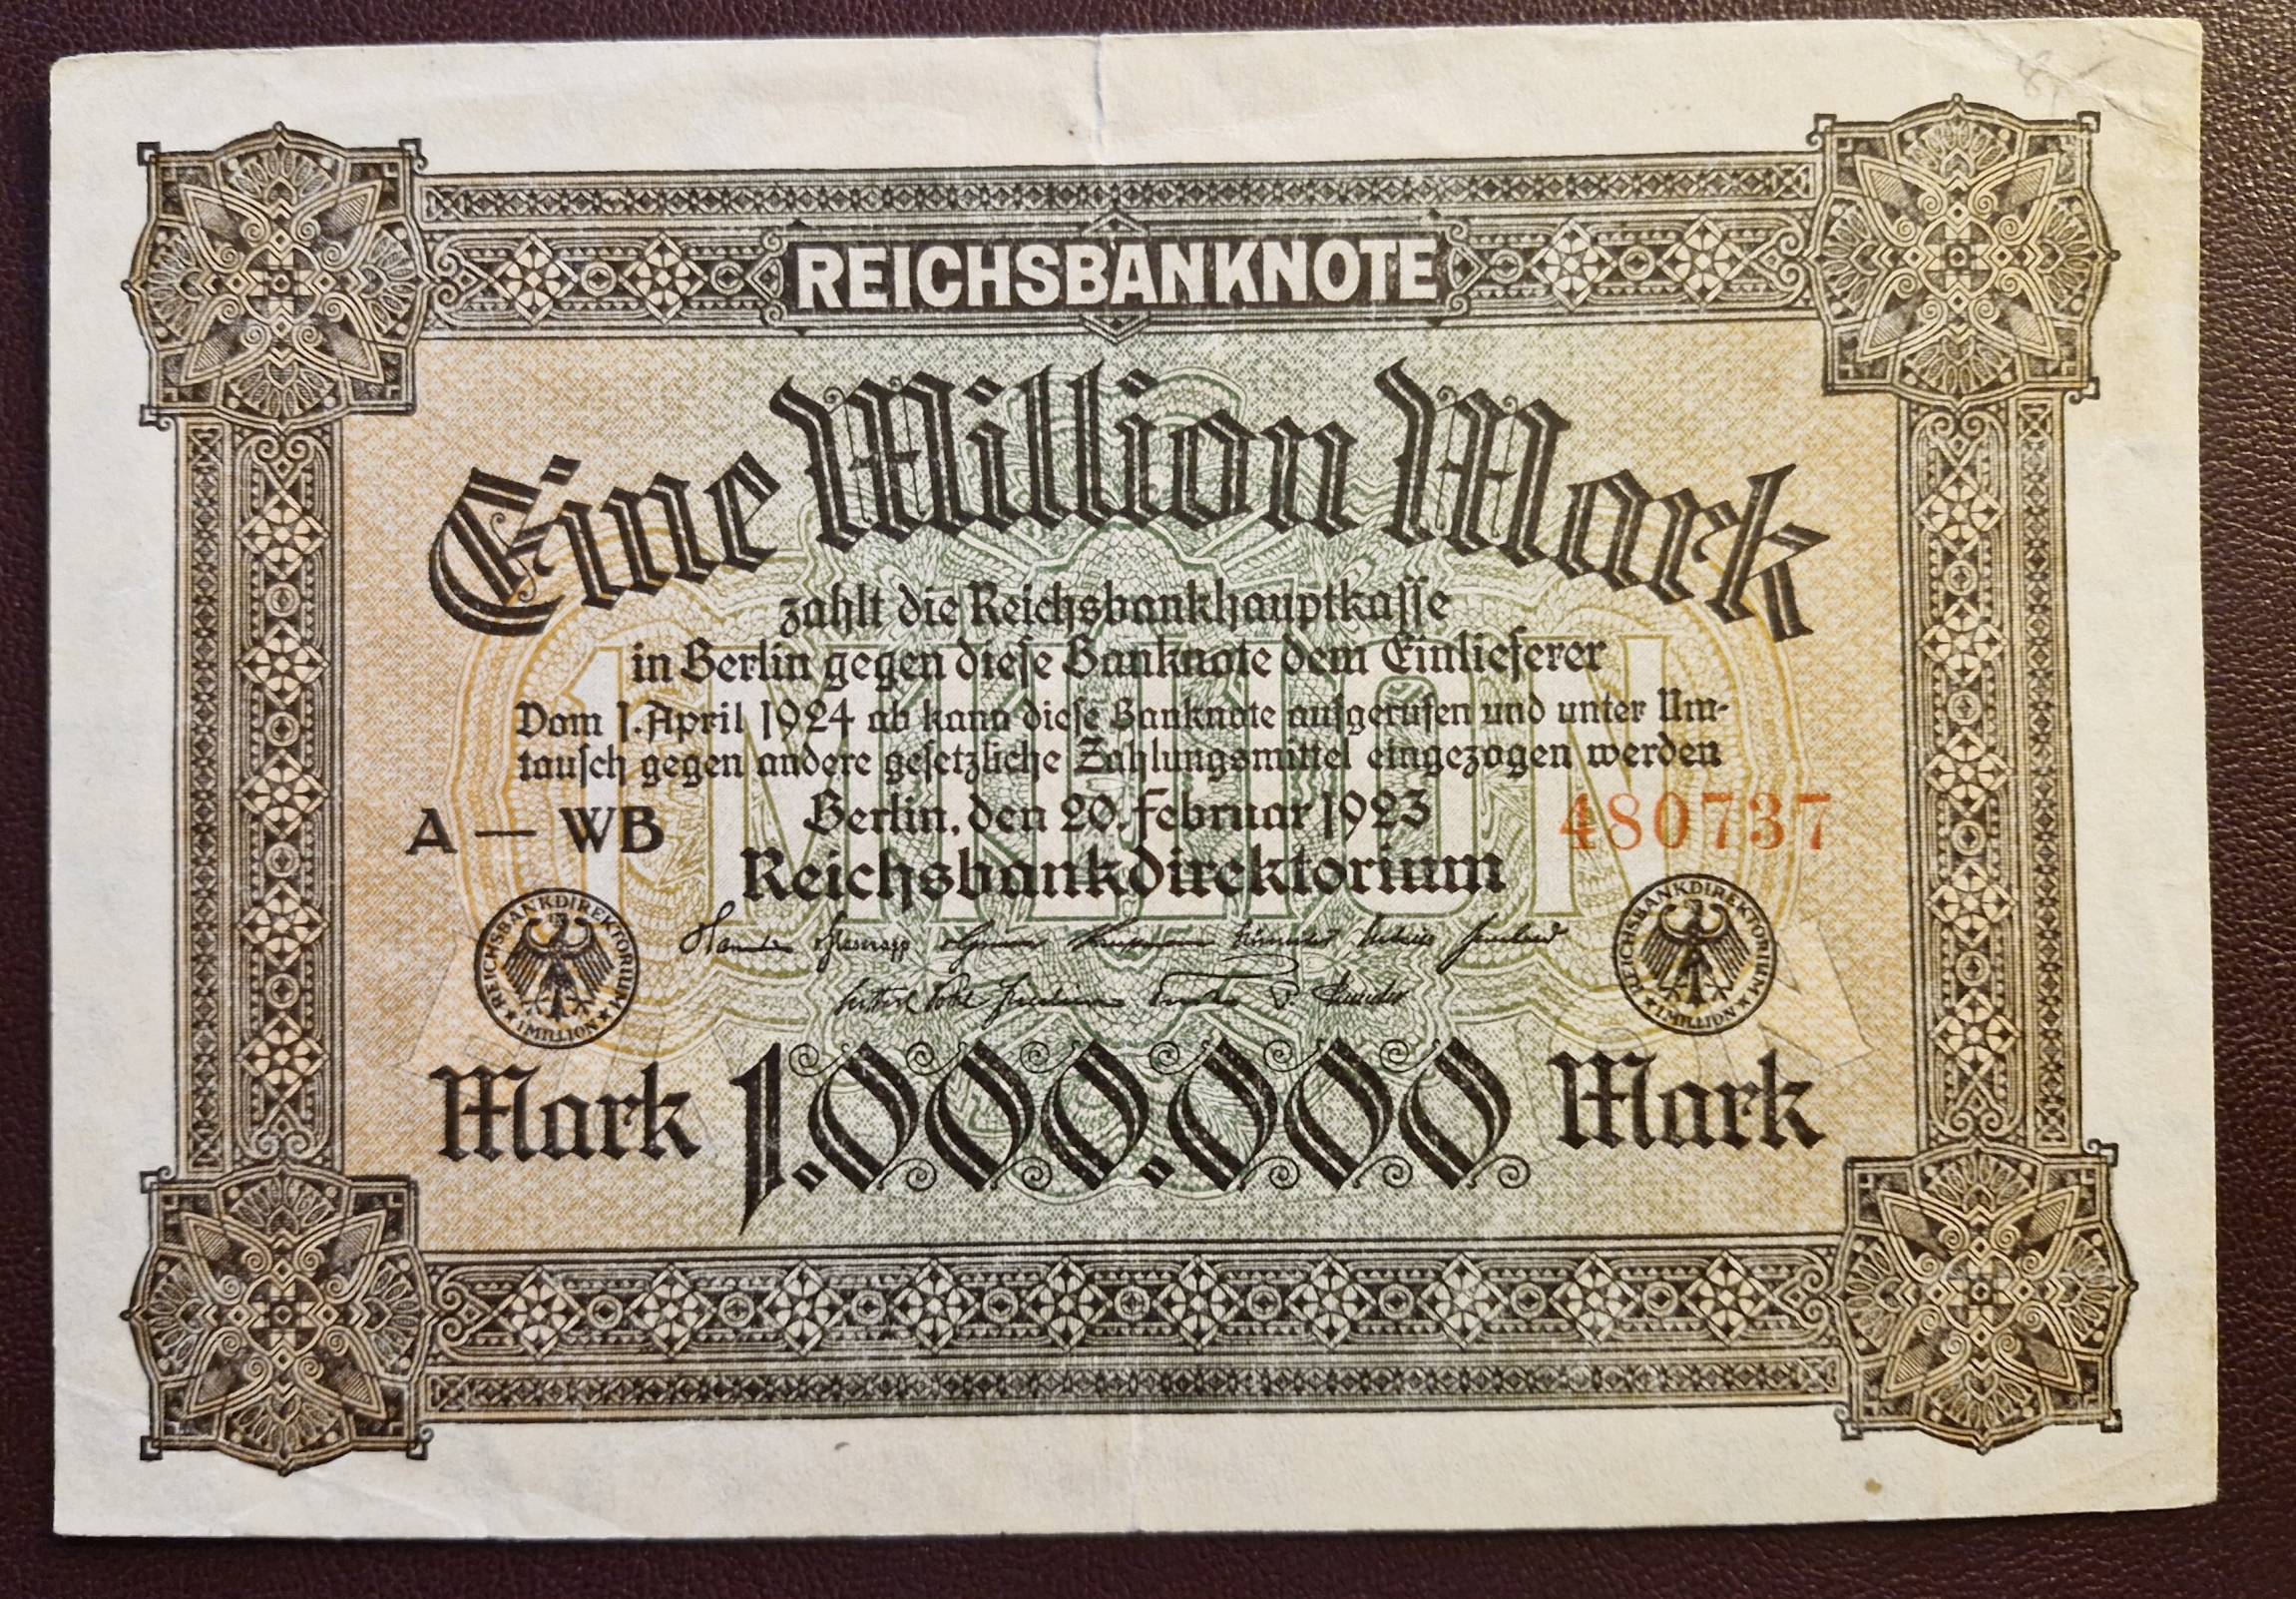 REICHSBANKNOTE
Eine Million Mark
zahlt die Reichsbankhauptkasse
in Berlin gegen diese Banknote dem Einlieferer
Vom 1. April 1924 ab kann diese Banknote aufgerufen und unter Um-
tausch gegen andere gesetzliche Zahlungsmittel eingezogen werden
A — WB
Berlin, den 20. Februar 1923
480737
Reichsbankdirektorium
REICHSBANKDIREKTORIUM ★ 1 MILLION ★
REICHSBANKDIREKTORIUM ★ 1 MILLION ★
1 MILLION
Mark 1.000.000 Mark